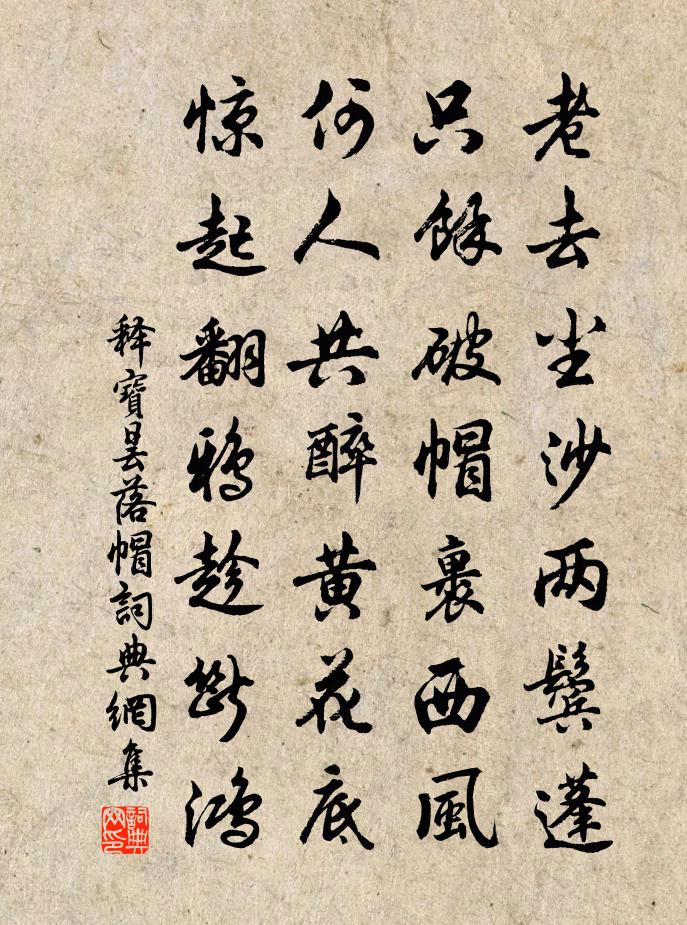 老去尘沙两鬓蓬
只餘破帽裹西風
何人共醉黄花底
惊起翻鸦趁断鸿
释寶昙落帽詞典網集
詞典
网印